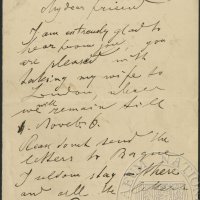 My dear friend
I am extremely glad to
hear from you, you
are pleased with
taking my wife to
London, where
we will remain till
1. Novemb.
Please don't send the
letters to Prague
I seldom stay there
and all the letters